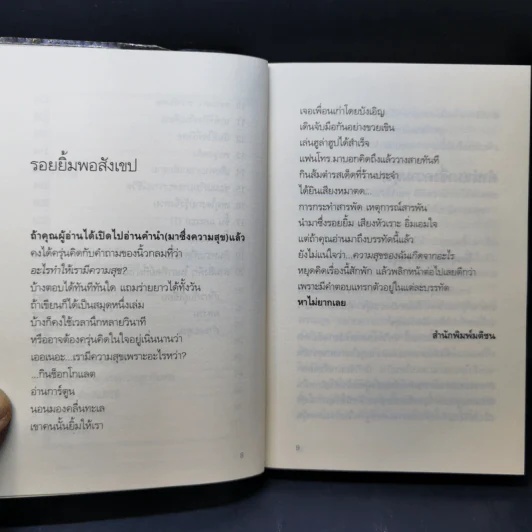 รอยยิ้มพอสังเขป
ถ้าคุณผู้อ่านได้เปิดไปอ่านคำนำ(มาซึ่งความสุข)แล้ว
คงได้ครุ่นคิดกับคำถามของนิ้วกลมที่ว่า
อะไรทำให้เรามีความสุข?
บ้างตอบได้ทันทีทันใด แถมร่ายยาวได้ทั้งวัน
ถ้าเขียนก็ได้เป็นสมุดหนึ่งเล่ม
บ้างก็คงใช้เวลานึกหลายวินาที
หรืออาจต้องครุ่นคิดในใจอยู่เนิ่นนานว่า
เออเนอะ...เรามีความสุขเพราะอะไรหว่า?
...กินช็อกโกแลต
อ่านการ์ตูน
นอนมองคลื่นทะเล
เขาคนนั้นยิ้มให้เรา
เจอเพื่อนเก่าโดยบังเอิญ
เดินจับมือกันอย่างขวยเขิน
เล่นฮูล่าฮูปได้สำเร็จ
แฟนโทร.มาบอกคิดถึงแล้ววางสายทันที
กินส้มตำรสเด็ดที่ร้านประจำ
ได้ยินเสียงหมาคด...
การกระทำสารพัด เหตุการณ์สารพัน
นำมาซึ่งรอยยิ้ม เสียงหัวเราะ อิ่มเอมใจ
แต่ถ้าคุณอ่านมาถึงบรรทัดนี้แล้ว
ยังไม่แน่ใจว่า...ความสุขของฉันเกิดจากอะไร
หยุดคิดเรื่องนี้สักพัก แล้วพลิกหน้าต่อไปเลยดีกว่า
เพราะมีคำตอบแทรกตัวอยู่ในแต่ละบรรทัด
หาไม่ยากเลย
สำนักพิมพ์มติชน